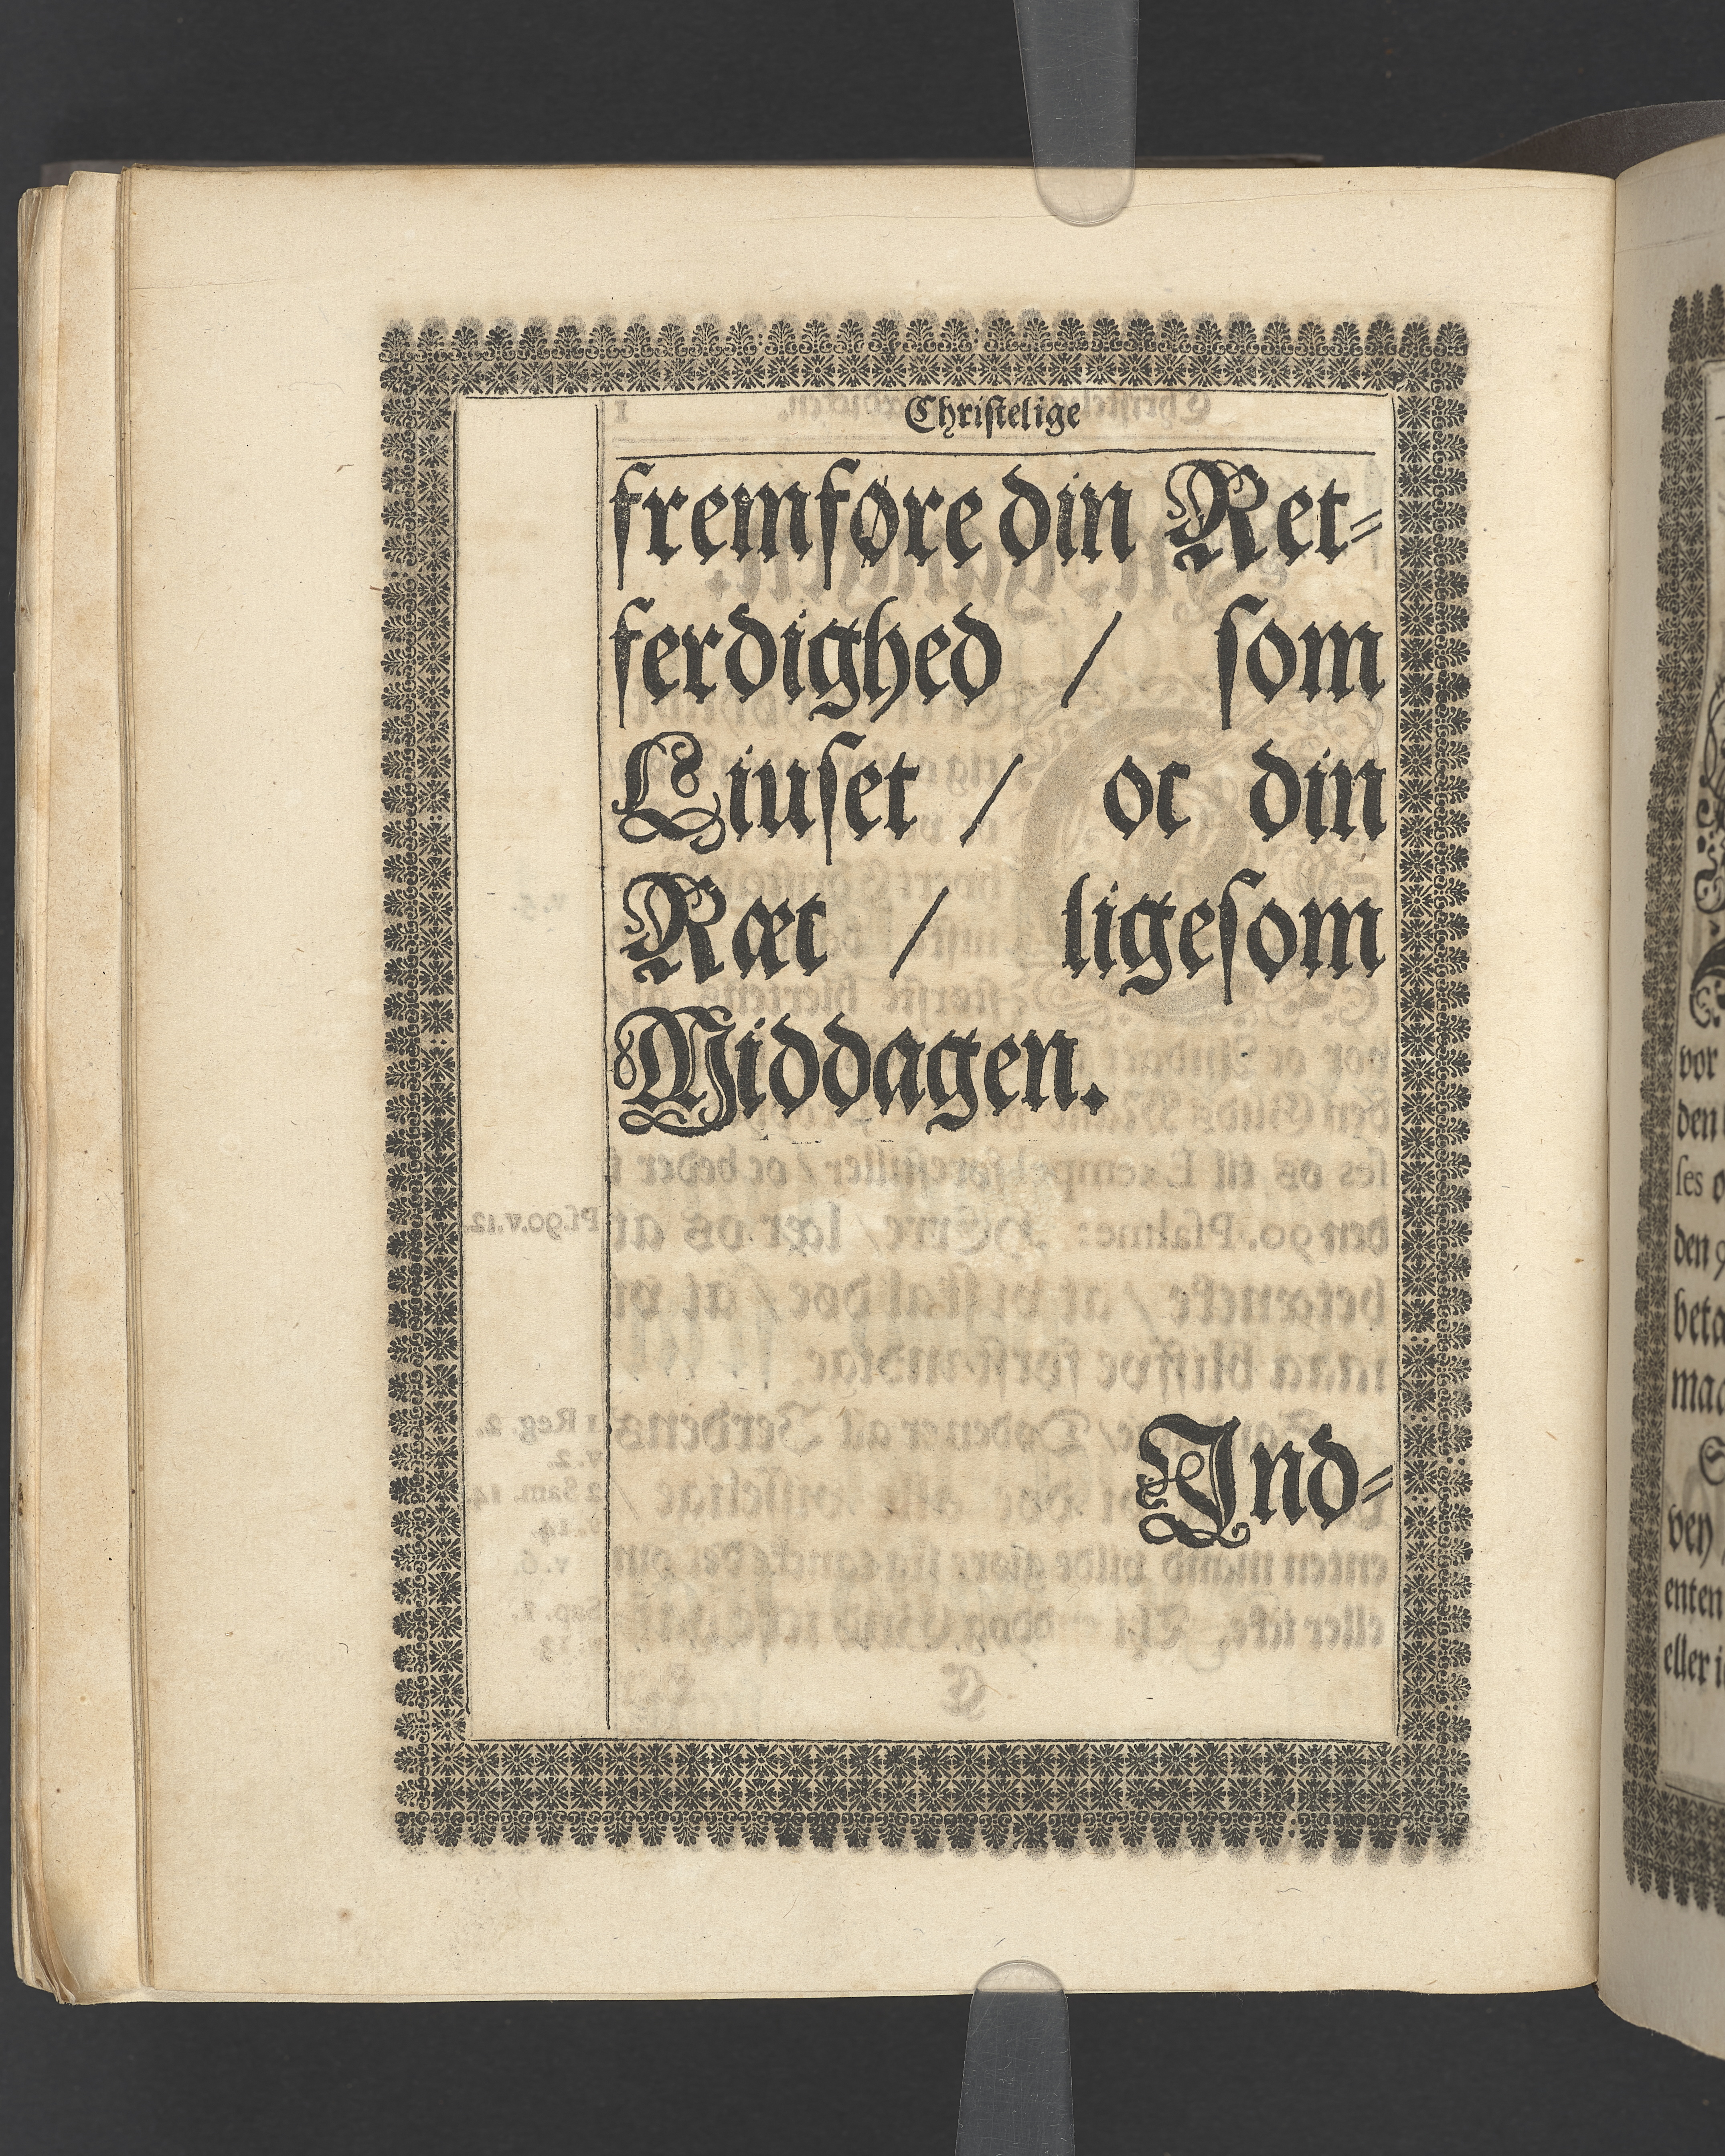 Chriſtelige
fremføre din Ret⸗
ferdighed / ſom
Liuſet / oc din
Ræt / ligeſom
Middagen.
Ind⸗